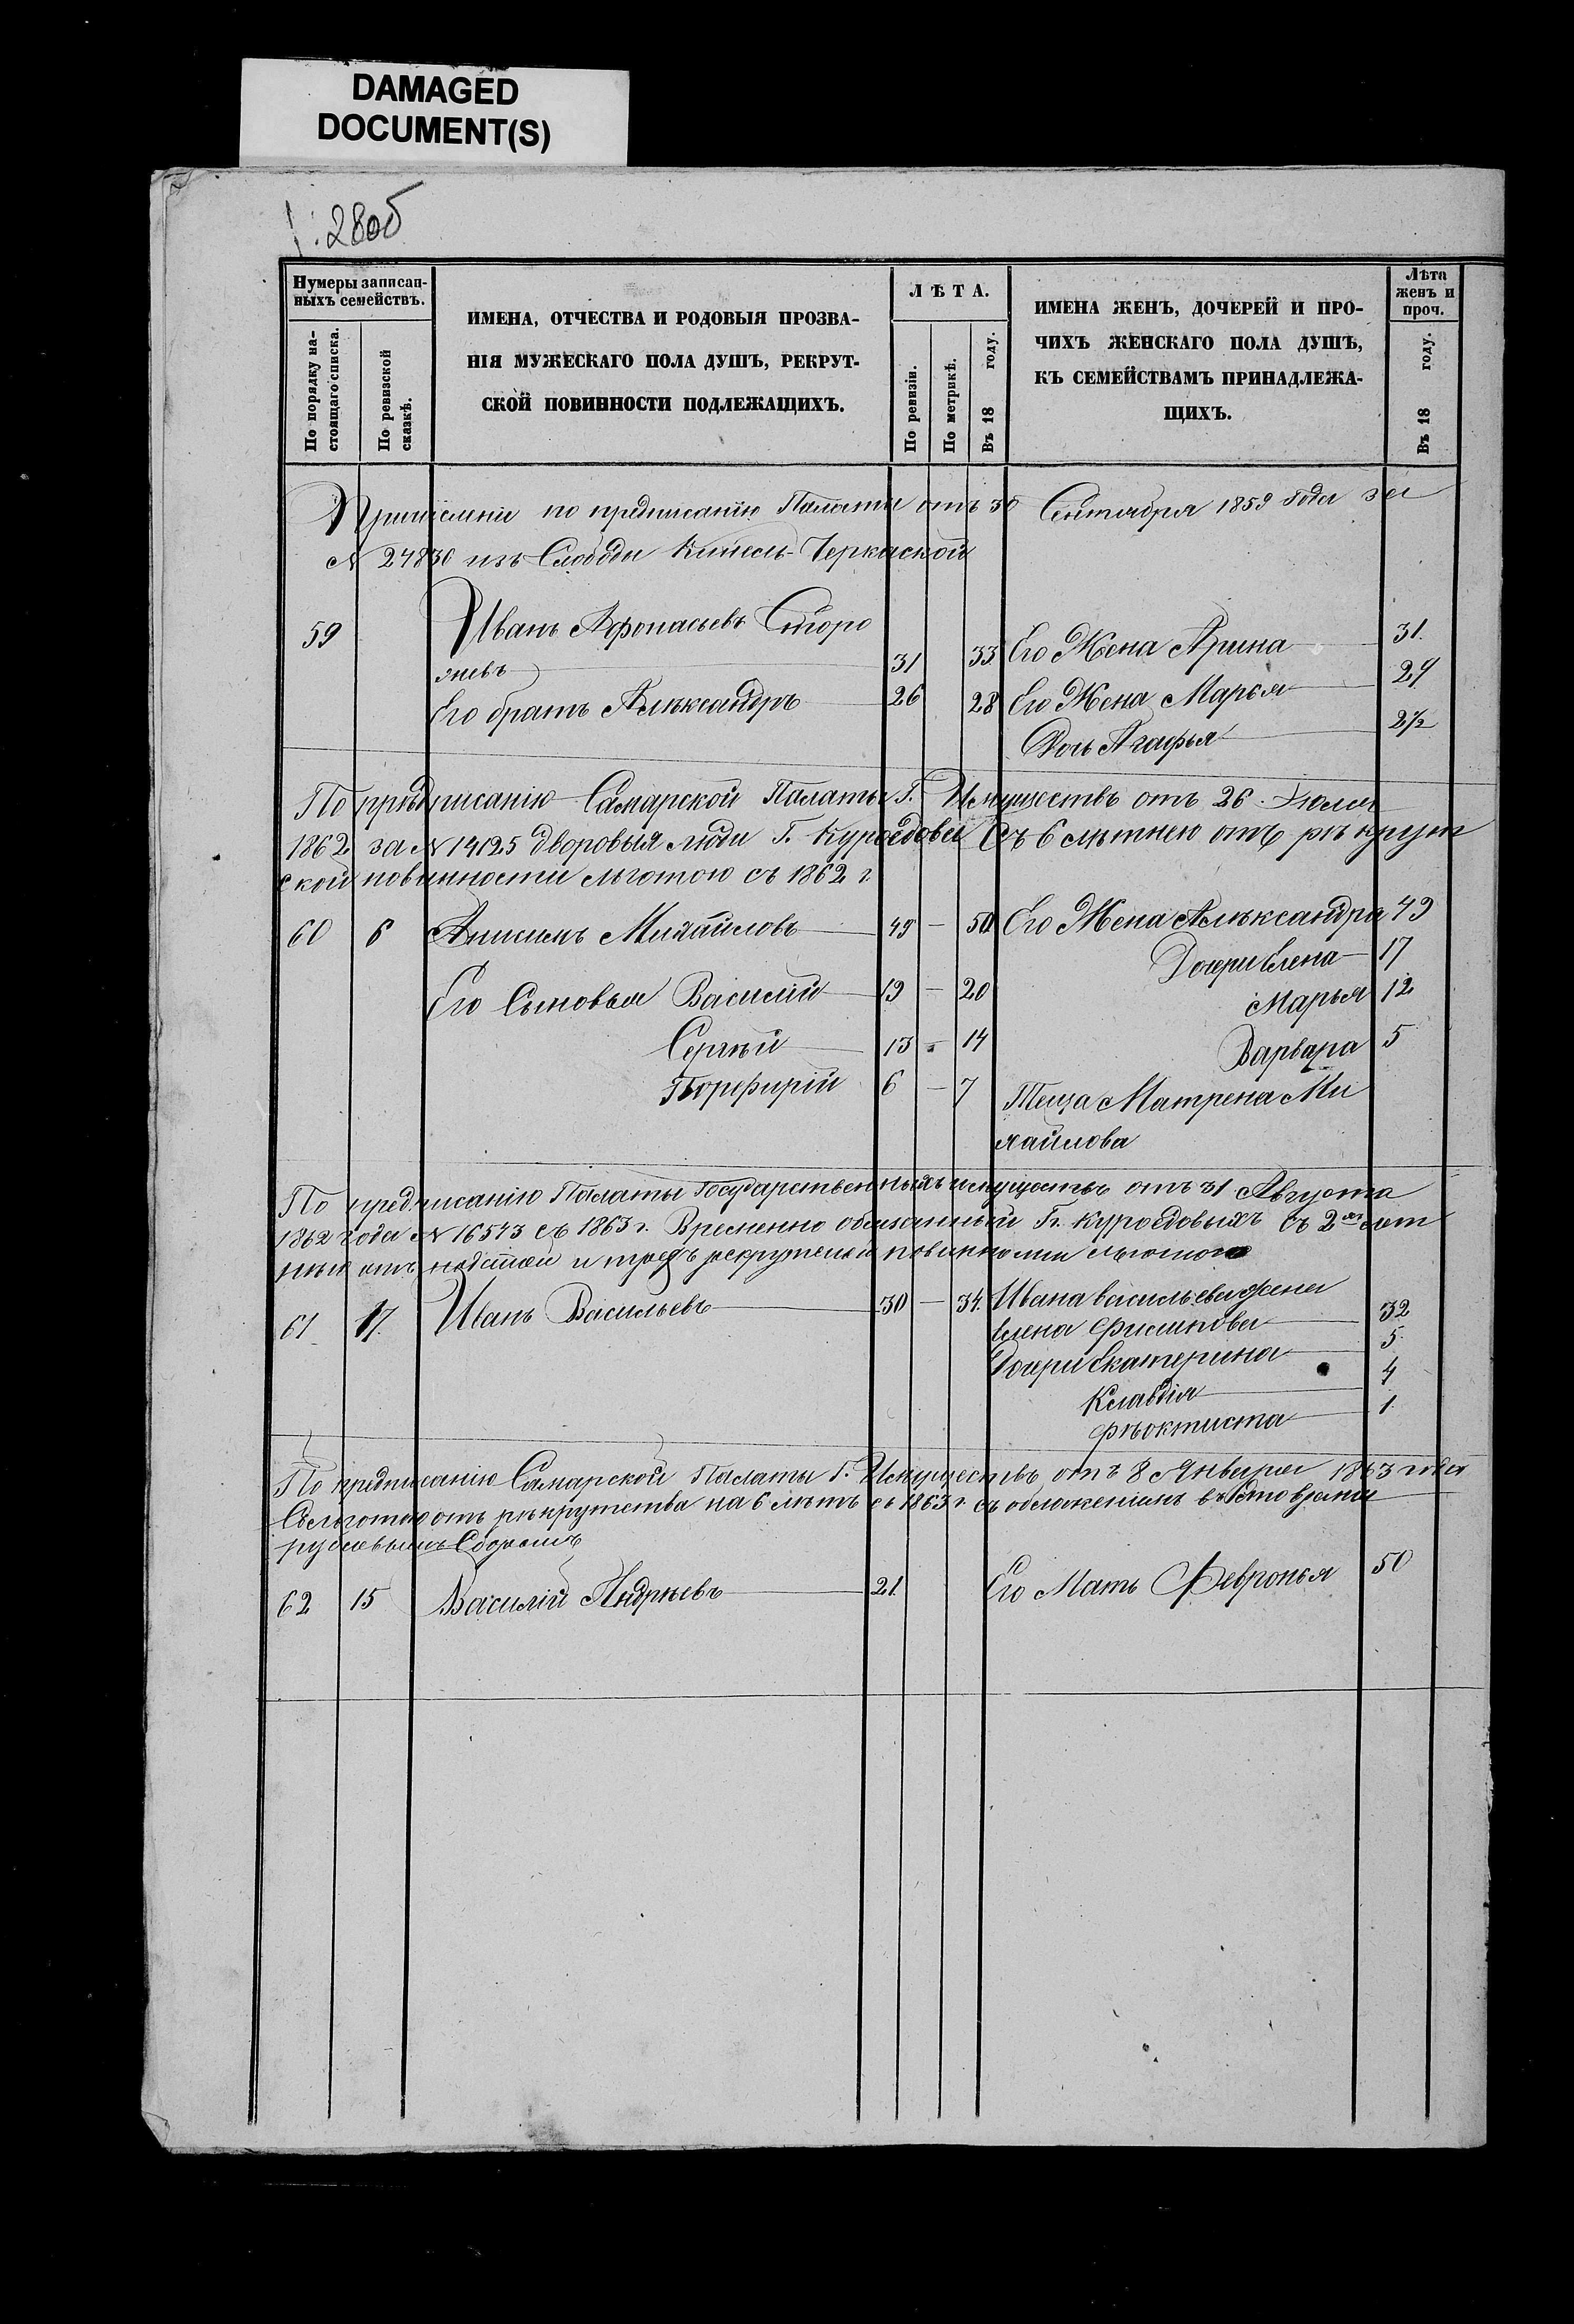 DAMAGED
DOCUMENT(S)
280об
Нумеры записан-
ныхъ семействъ.
По порядку на-
стоящаго списка.
По ревизской
сказкѣ.
ИМЕНА, ОТЧЕСТВА И РОДОВЫЯ ПРОЗВА-
НІЯ МУЖЕСКАГО ПОЛА ДУШЪ, РЕКРУТ-
СКОЙ ПОВИННОСТИ ПОДЛЕЖАЩИХЪ.
ЛѢТА.
По ревизіи.
По метрикѣ.
Въ 18 году.
ИМЕНА ЖЕНЪ, ДОЧЕРЕЙ И ПРО-
ЧИХЪ ЖЕНСКАГО ПОЛА ДУШЪ,
КЪ СЕМЕЙСТВАМЪ ПРИНАДЛЕЖА-
ЩИХЪ.
Лѣта
женъ и
проч.
Въ 18 году.
по предписанію Палаты отъ 30 Сентября 1859 года за
№ 24830 изъ Слободы Кинель-Черкаской
59 Иванъ Афонасьевъ Сторо
жевъ 31 33 Его Жена Арина 31
Его братъ Алѣксандръ 26 28 Его Жена Марья 29
Дочь Агафья 2½
По прѣдписанію Самарской Палаты Г. Имуществъ отъ 26 Іюля
1862 за № 14125 дворовыя люди Г. Куроѣдова Съ 6 лѣтнею отъ рѣкрут
ской повинности льготою съ 1862 г.
60 6 Анисимъ Михайловъ 49 – 50 Его Жена Алѣксандра 49
Дочери Елена 17
Его Сыновья Василій 19 – 20
Марья 12
Сергѣй 13 – 14
Варвара 5
Порфирій 6 – 7
Теща Матрена Ми
хайлова
По предписанію Палаты Государственныхъ имуществъ отъ 31 Августа
1862 года № 16543 съ 1863 г. Временно обязанный Гг. Куроедовыхъ съ 2хъ лет
нею отъ податей и рекрутской повинности льготою
61 17. Иванъ Васильевъ 30 – 34. Ивана васильева жена
Елена Филипова 32
Дочери Екатерина 5
Клавдія 4
Фѣоктиста 1.
По предписанію Самарской Палаты Г. Имуществъ отъ 8 Января 1863 года
Съ льготою отъ рѣкрутства на 6 лѣтъ съ 1863 г. съ обложеніемъ
Сборомъ
62 15 Василій Андрѣевъ 21. Его Мать Февронья 50